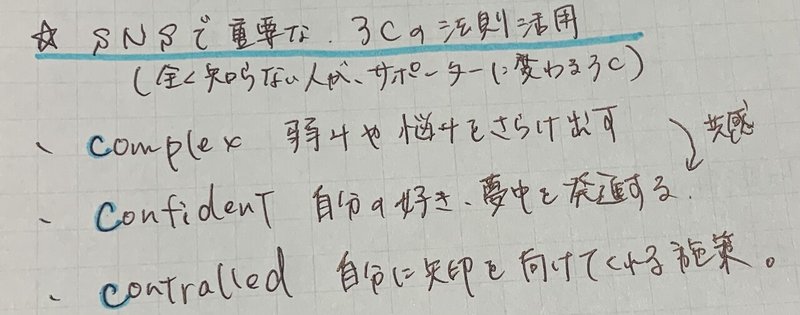 ☆ SNSで重要な、3Cの法則活用
(全く知らない人が、サポーターに変わる3C)
、complex 弱みや悩みをさらけ出す
共感
、confident 自分の好き、夢中を発進する。
、contralled 自分に矢印を向けてくれる施策。